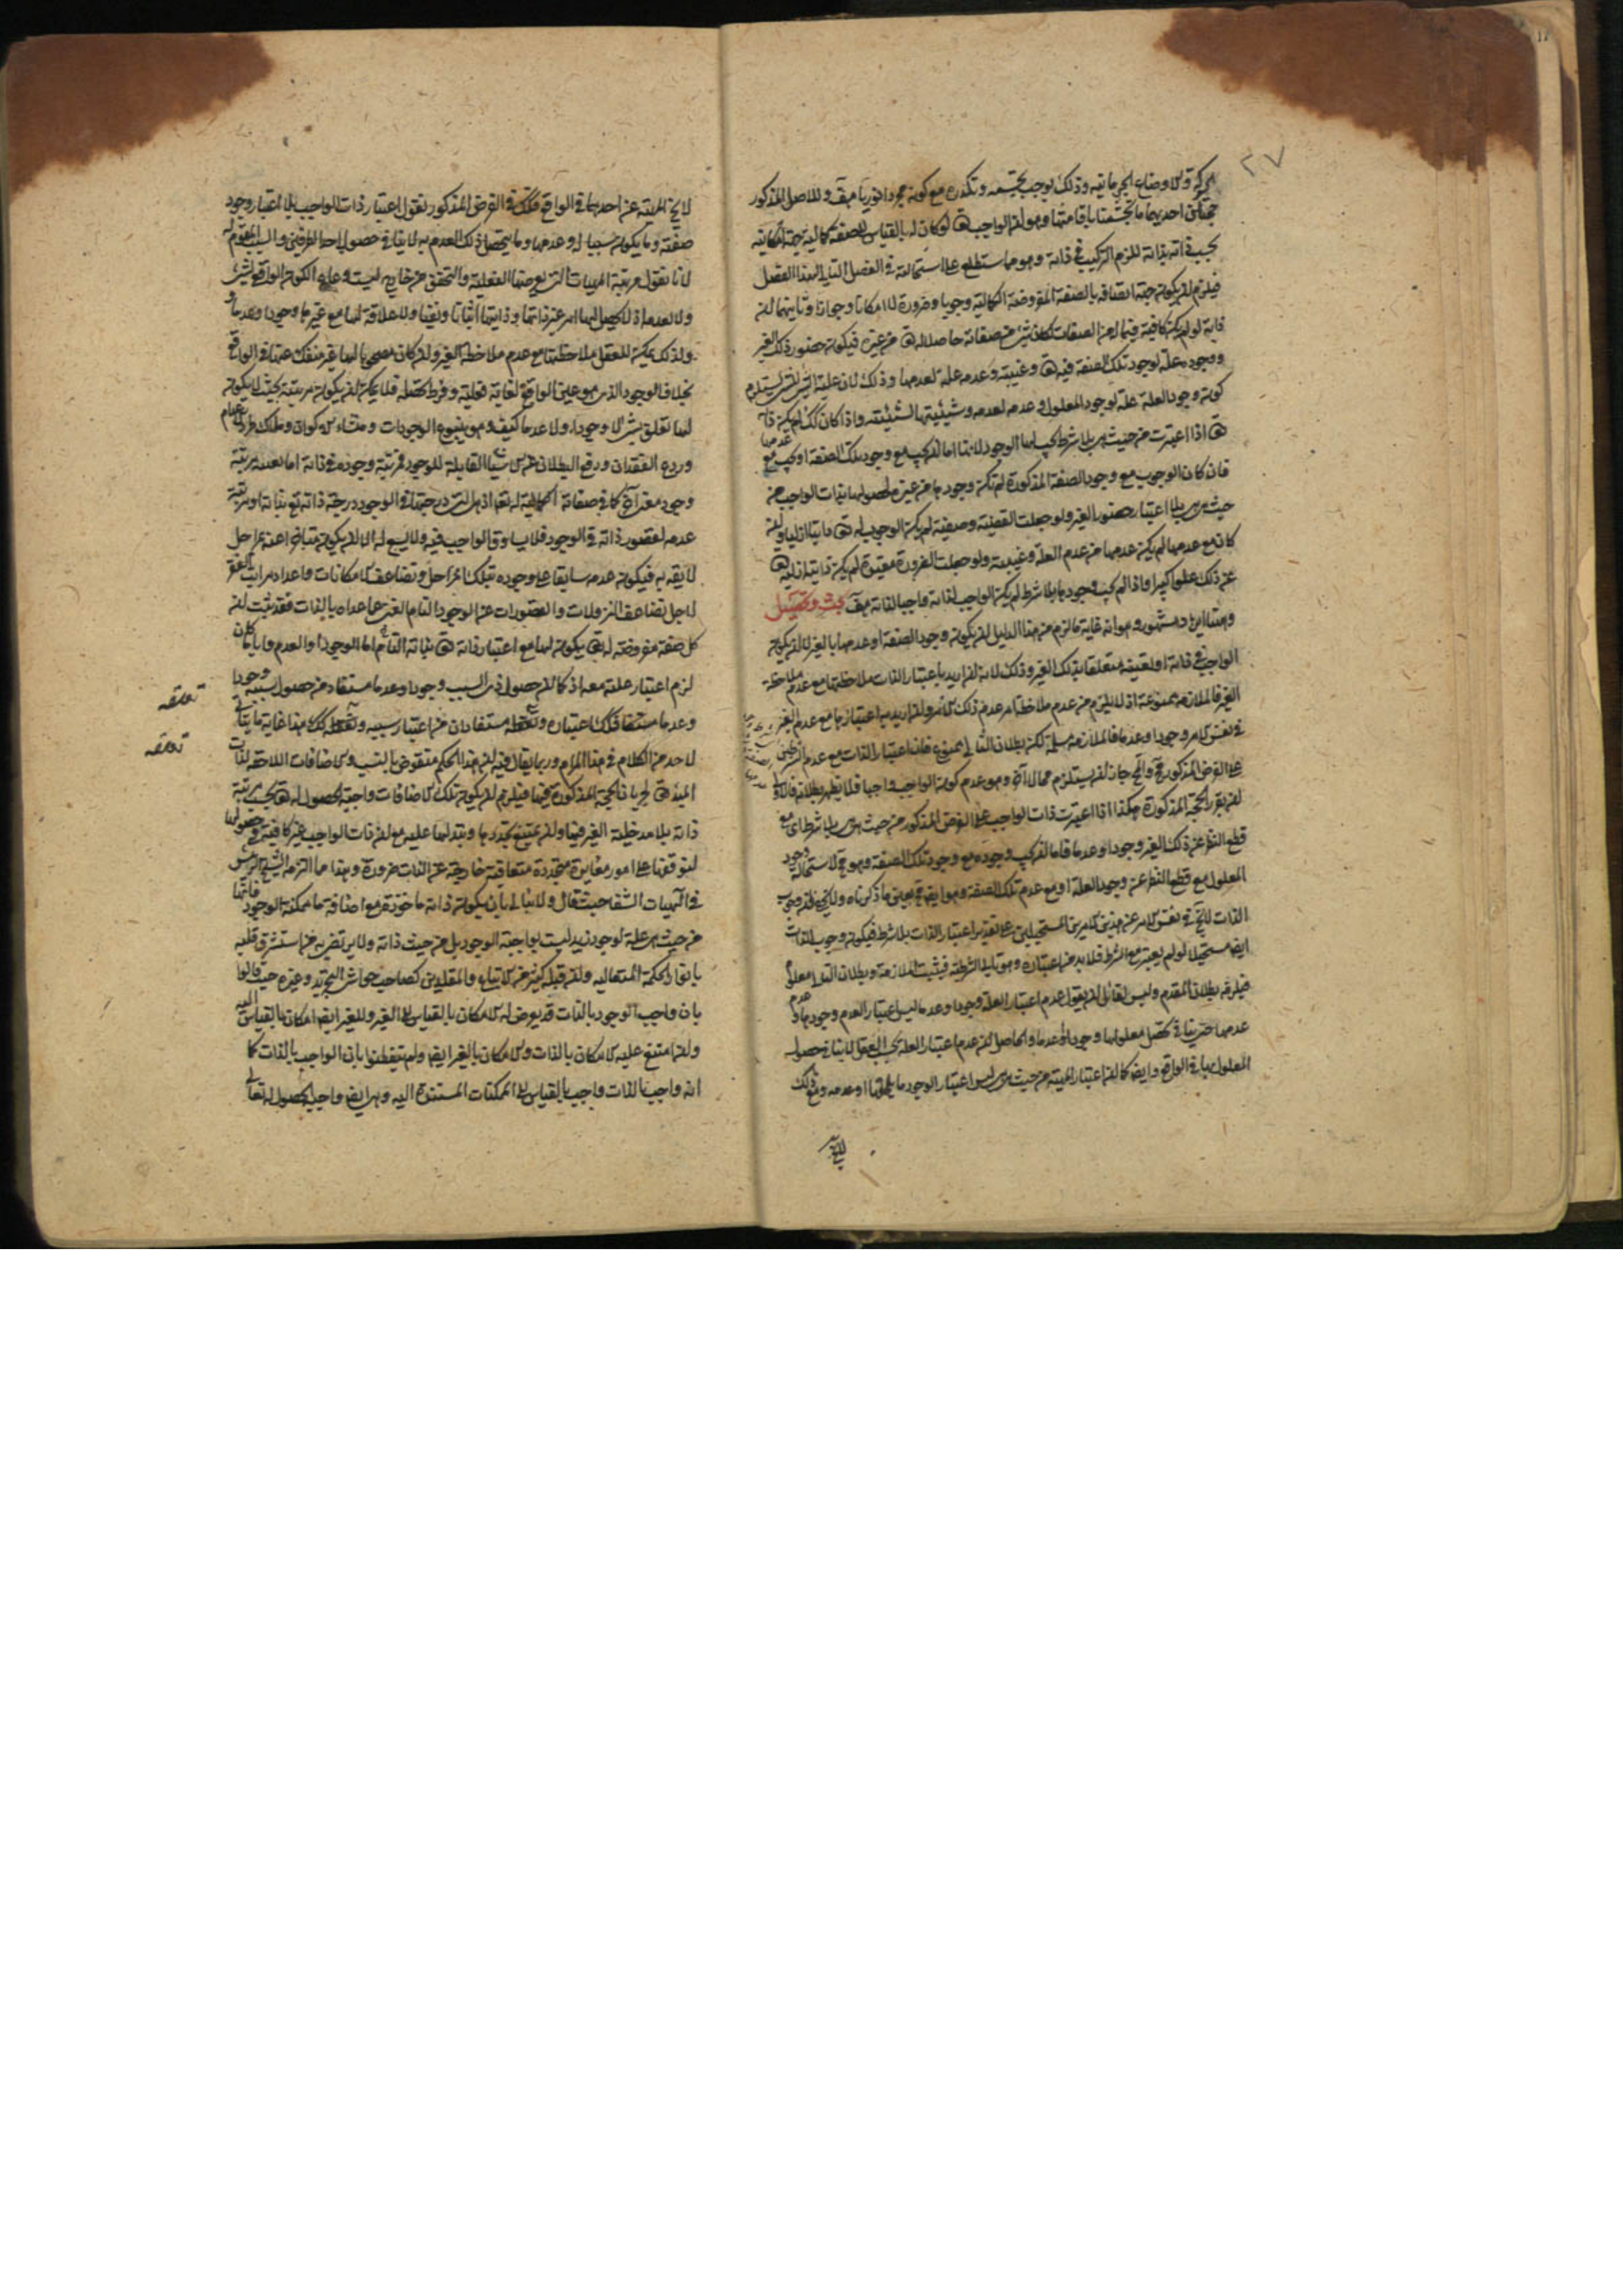 ٢٧
الحركة والاوضاع الجرمانية وذلك يوجب تجسمه وتكدره مع كونه مجردا نوريا هف وللاصل المذكور
حجتان احديهما ما تجشمنا باقامتها وهو ان الواجب تع لو كان له بالقياس الى صفة كمالية جهة امكانية
بحسب ذاته بذاته للزم التركيب في ذاته وهو مما ستطلع على استحالته في الفصل التالي لهذا الفصل
فيلزم ان يكون جهة اتصافه بالصفة المفروضة الكمالية وجوبا وضرورة لا امكانا وجوازا وثانيتهما ان
ذاته لو لم يكن كافية فيما له من الصفات لكان شئ من صفاته حاصلا له تع من غيره فيكون حضور ذلك الغير
ووجوده علة لوجود تلك الصفة فيه تع وغيبته وعدمه علة لعدمها وذلك لان علية الشئ للشئ يستلزم
كون وجود العلة علة لوجود المعلول وعدمه لعدمه وشيئيتها لشيئيته واذا كان كك لم يكن ذاته
تع اذا اعتبرت من حيث هي بلا شرط يجب لها الوجود لانها اما ان يجب مع وجود تلك الصفة او يجب مع عدمها
فان كان الوجوب مع وجود الصفة المذكورة لم تكن وجودها من غيره لحصولها بذات الواجب من
حيث هي هي بلا اعتبار حضور الغير ولو جعلت القضية وصفية لم يكن الوجوب له تع ذاتيا ازليا وان
كان مع عدمها لم يكن عدمها من عدم العلة وغيبته ولو جعلت الضرورة مقيدة لم يكن ذاتية ازلية تع
عن ذلك علوا كبيرا واذا لم يجب وجودها بلا شرط لم يكن الواجب لذاته واجبا لذاته هف بحث وتحصيل
وهنا ايراد مشهور وهو انه غاية ما لزم من هذا الدليل ان يكون وجود الصفة او عدمها بالغير لا ان يكون
الواجب في ذاته او تعينه متعلقا بذلك الغير وذلك لانه ان اريد باعتبار الذات ملاحظتها مع عدم ملاحظة
الغير فالملازمة ممنوعة اذ لا يلزم من عدم ملاحظة امر عدم ذلك الامر وان اريد به اعتبارها مع عدم الغير
في نفس الامر وجودا وعدما فالملازمة مسلمة لكن بطلان التالي ممنوع فان اعتبار الذات مع عدم الطرفين
على الفرض المذكور مح والمح جاز ان يستلزم محالا آخر وهو عدم كون الواجب واجبا فلا يظهر بطلانه فالاولى
ان يقرر الحجة المذكورة هكذا اذا اعتبرت ذات الواجب على الفرض المذكور من حيث هي هي بلا شرط اى مع
قطع النظر عن ذلك الغير وجودا وعدما فاما ان يجب وجوده مع وجود تلك الصفة وهو مح لاستحالة وجود
المعلول مع قطع النظر عن وجود العلة او مع عدم تلك الصفة وهو ايضا مح بعين ما ذكرناه ولا يخفى ان وجوب
الذات لا يخ في نفس الامر عن هذين الامرين المستحيلين على تقدير اعتبار الذات بلا شرط فيكون وجوب الذات
ايضا مستحيلا لو لم يعتبر مع الشرط فلا بد من اعتباره وهو تالي الشرطية فيثبت الملازمة وبطلان التالي معلوم
فيلزمه بطلان المقدم وليس لقائل ان يقول عدم اعتبار العلة وجودا وعدما ليس اعتبار العدم وجودها وعدم
عدمها حتى ينافي تحصل معلولها وجودا وعدما والحاصل ان عدم اعتبار العلة بحسب العقل لا ينافي حصول
المعلول بها في الواقع وايضا كما ان اعتبار المهية من حيث هي هي ليس اعتبار الوجود ما يلحقها او عدمه ومع ذلك
لا يخ
لا يخ المهية عن احدهما في الواقع فكك في الفرض المذكور نقول اعتبار ذات الواجب بلا اعتبار وجود
صفة وما يكون سببا له وعدمها وما يتحصل ذلك العدم به لا ينافي حصول احد الطرفين والسبب المقوم له
لانا نقول مرتبة المهيات التي يعرضها الفعلية والتحقق من خارج ليست وعاء الكون الواقعي لشئ
ولا لعدمه اذ لا يحصل لها امر غير ذاتها وذاتيتها اثباتا ونفيا ولا علاقة لها مع غيرها وجودا وعدما
ولذلك يمكن للعقل ملاحظتها مع عدم ملاحظة الغير وان كان مصحوبا لها غير منفك عنها في الواقع
بخلاف الوجود الذي هو عين الواقع لغاية فعليته وفرط تحصله فلا يمكن ان يكون مرتبته بحيث لا يكون
لها تعلق بشئ لا وجودا ولا عدما كيف وهو ينبوع الوجودات ومنشاء الاكوان وملاك طرد الاعدام
ورده الفقدان ودفع البطلان عن الاشياء القابلة للوجود فمرتبة وجوده في ذاته اما بعينه مرتبة
وجود معد اخر كما في صفاته الكمالية له تع اذ هي ان درجتها في الوجود درجة ذاته تع بذاته او مرتبة
عدمه لقصور ذاته في الوجود فلا يساوق الواجب فيه ولا يسع له الا ان يكون متباعدا عنه بمراحل
لائقة به فيكون عدمه سابقا على وجوده بتلك المراحل وتضاعف الامكانات واعداد مراتب الفقر
لاجل تضاعف النزولات والقصورات عن الوجود التام الغني عما عداه بالذات فقد ثبت ان
كل صفة مفروضة له تع يكون لها مع اعتبار ذاته تع بذاته التامة اما الوجود او العدم وايا ما كان
لزم اعتبار علته معه اذ كما ان حصول ذى السبب وجودا وعدما مستفاد من حصول سببه وجودا
وعدما مستفا فكك اعتباره وتعقله مستفادان من اعتبار سببه وتعقله كك هذا غاية ما يتأتى
لاحد من الكلام في هذا المرام وربما يقال فيه ان هذا الحكم منقوض بالنسب والاضافات اللاحقة لذات
المبدء تع لجريان الحجة المذكورة فيها فيلزم ان يكون تلك الاضافات واجبة الحصول له تع بحسب مرتبة
ذاته بلا مدخلية الغير فيها وان يمتنع تجددها وتبدلها عليه مع ان ذات الواجب غير كافية في حصولها
لتوقفها على امور مغايرة متجددة متعاقبة خارجة عن الذات ضرورة وهذا مما التزمه الشيخ الرئيس
في آلهيات الشفا حيث قال ولا نبالي بان يكون ذاته ماخوذة مع اضافة ما ممكنة الوجود فانها
من حيث هي علة لوجود زيد ليست بواجبة الوجود بل من حيث ذاته ولا يرتضي به من استشرق قلبه
بانوار الحكمة المتعالية وان قبله كثير من الاتباع والمقلدين كصاحب حواشى التجريد وغيره حيث قالوا
بان واجب الوجود بالذات قد يعرض له الامكان بالقياس الى الغير وللغير ايضا امكان بالقياس اليه
وان امتنع عليه الامكان بالذات والامكان بالغير ايضا ولم يتفطنوا بان الواجب بالذات كما
انه واجب بالذات واجب بالقياس الى الممكنات المستندة اليه وهي ايضا واجبة الحصول له تعالى
تعقله
تعقله